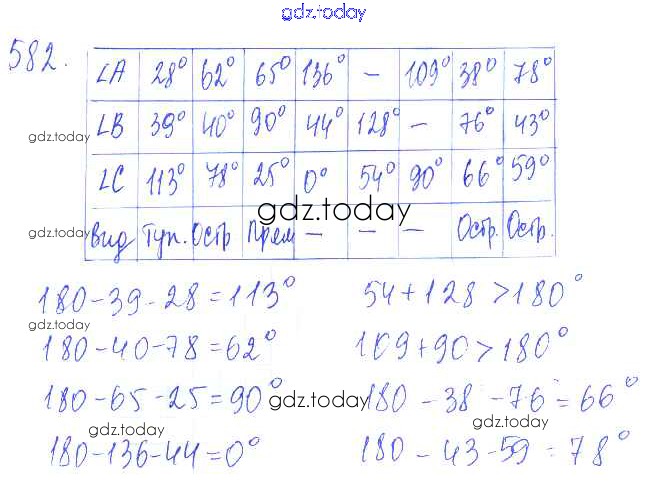 gdz.today
582.
∠A 28° 62° 65° 136° — 109° 38° 78°
gdz.today ∠B 39° 40° 90° 44° 128° — 76° 43°
∠C 113° 78° 25° 0° 54° 90° 66° 59°
gdz.today
gdz.today Вид Туп. Остр Прям — — — Остр. Остр.
180-39-28=113° 54+128>180°
gdz.today
180-40-78=62° 109+90>180°
180-65-25=90° gdz.today 180-38-76=66°
gdz.today gdz.today
180-136-44=0° 180-43-59=78°
gdz.today